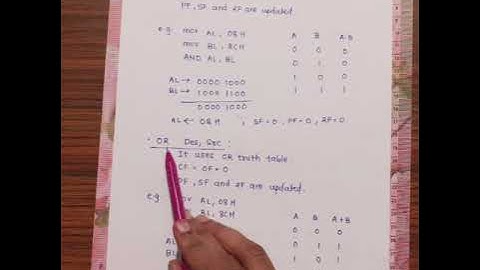 PF, SF and ZF are updated
e.g mov AL, 08H A B A·B
mov BL, 8CH 0 0 0
AND AL, BL 0 1 0
AL → 0000 1000 1 0 0
BL → 1000 1100 1 1 1
0000 1000
AL ← 08H ; SF=0, PF=0, ZF=0
• OR Des, Src :
It uses OR truth table
CF = OF = 0
PF, SF and ZF are updated.
e.g mov AL, 08H A B A+B
BL, 8CH 0 0 0
AL 0 1 1
BL 1 0 1